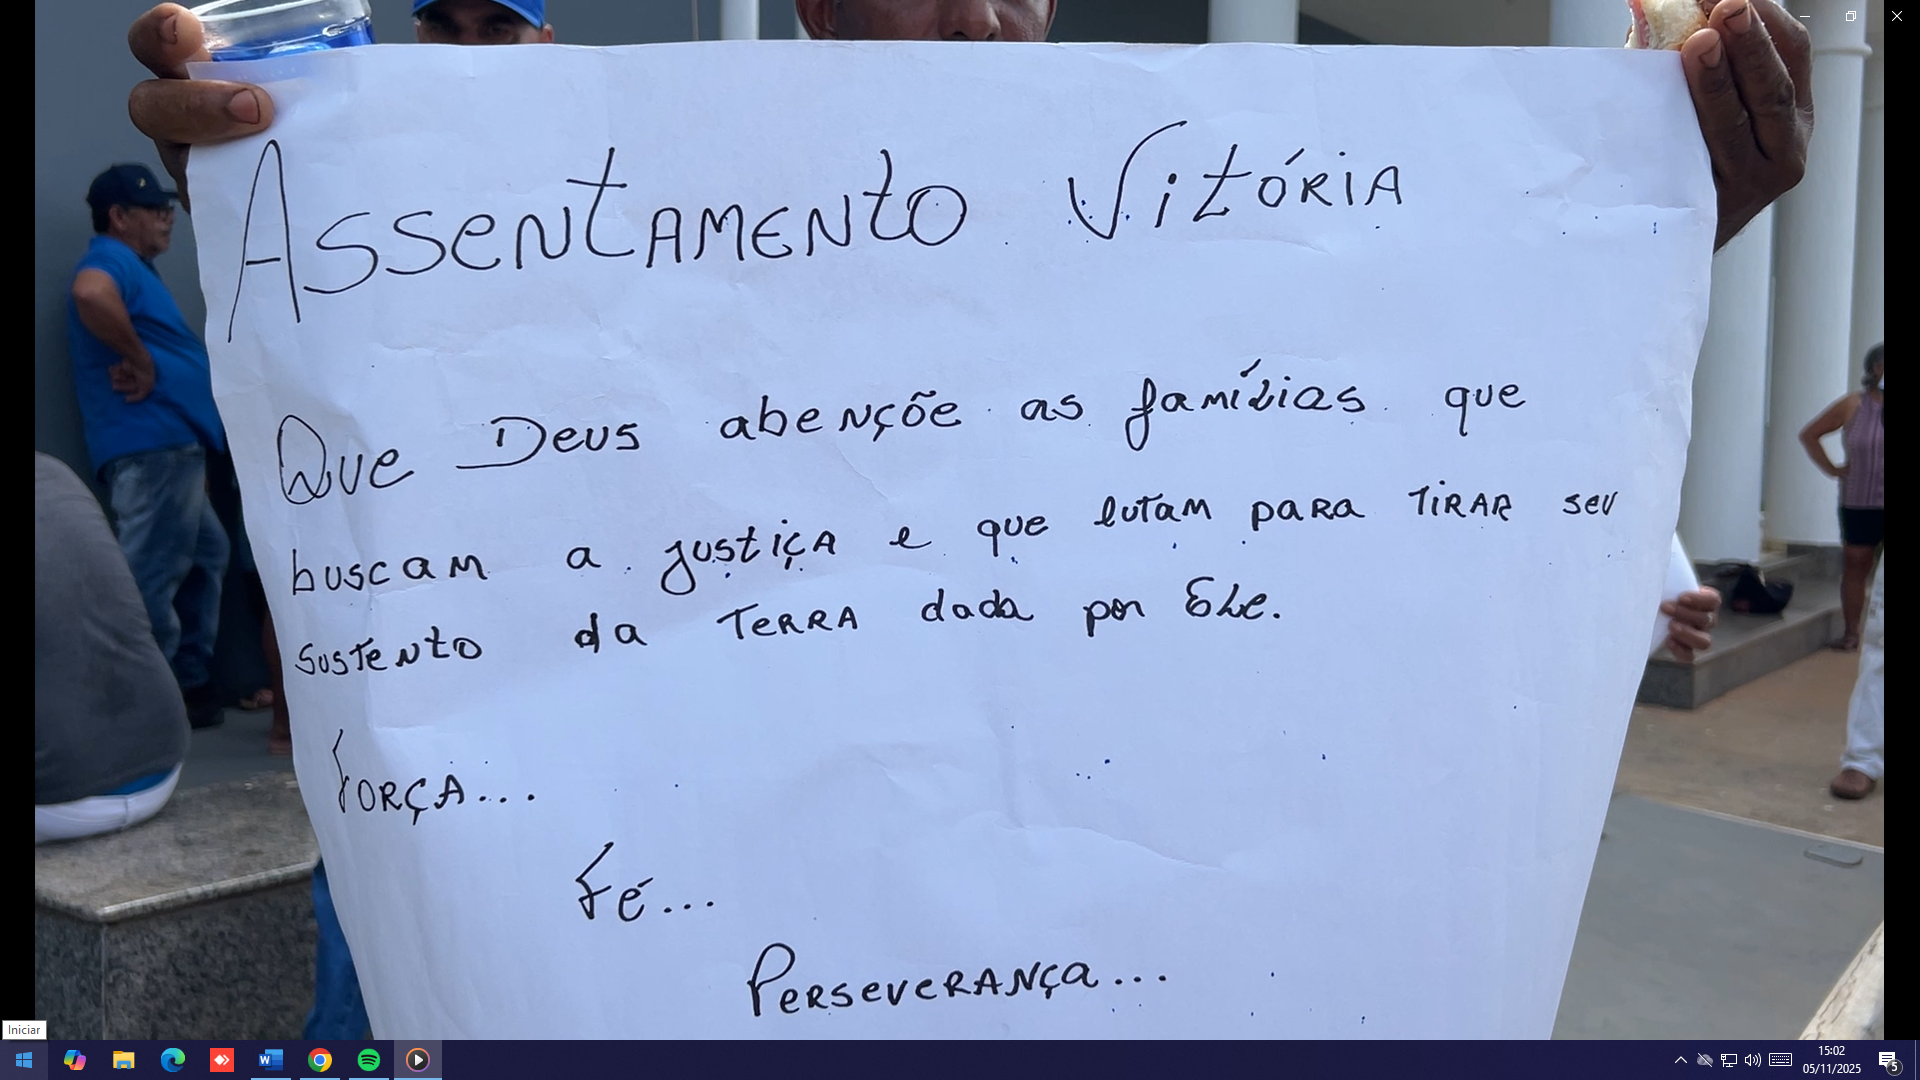 Assentamento Vitória
Que Deus abençõe as famílias que
buscam a justiça e que lutam para tirar seu
sustento da terra dada por Ele.
Força...
Fé...
Perseverança...
Iniciar
15:02
05/11/2025
5